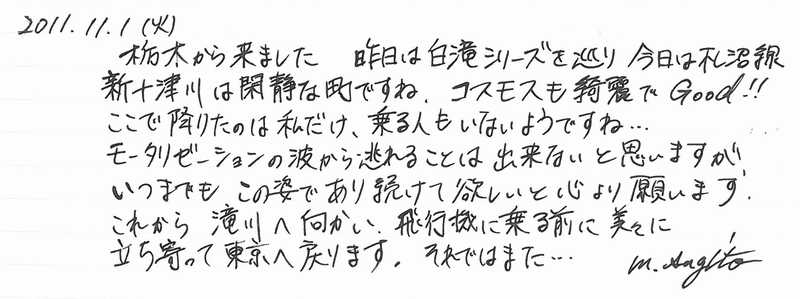 2011.11.1(火)
栃木から来ました 昨日は白滝シリーズを巡り 今日は札沼線
新十津川は閑静な町ですね、コスモスも綺麗でGood!!
ここで降りたのは私だけ、乗る人もいないようですね…
モータリゼーションの波から逃れることは出来ないと思いますが
いつまでもこの姿であり続けて欲しいと心より願います.
これから滝川へ向かい、飛行機に乗る前に美々に
立ち寄って東京へ戻ります。それではまた…
M.